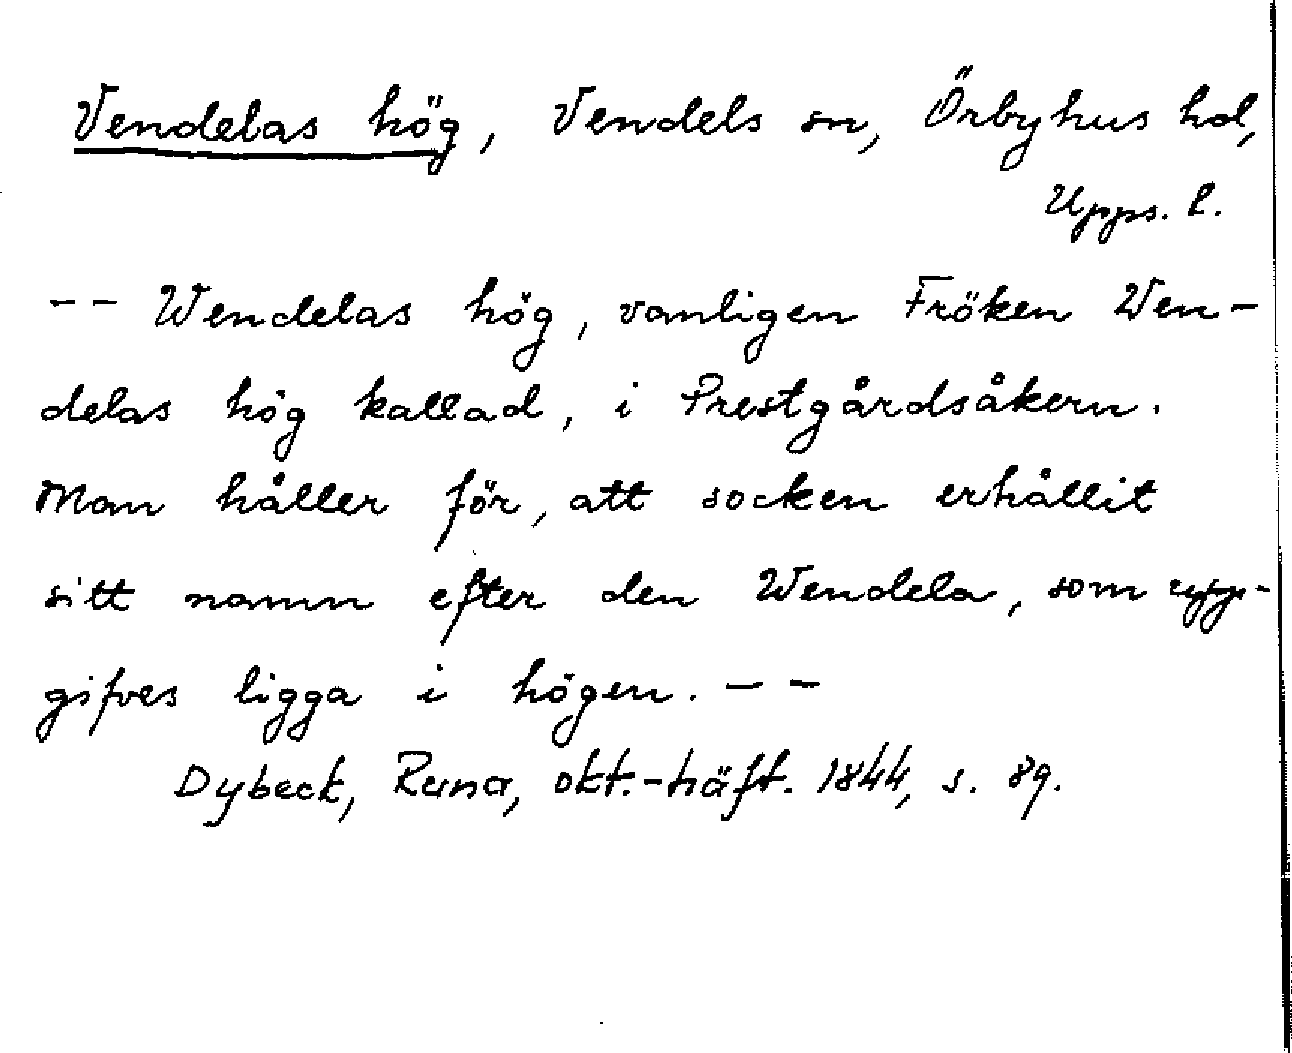 Vendelas hög, Vendels sn, Örbyhus hd,
Upps. l.
-- Wendelas hög, vanligen Fröken Wen-
delas hög kallad, i Prestgårdsåkern.
Man håller för, att socken erhållit
sitt namn efter den Wendela, som upp-
gifves ligga i högen. --
Dybeck, Runa, okt.-häft. 1844, s. 89.